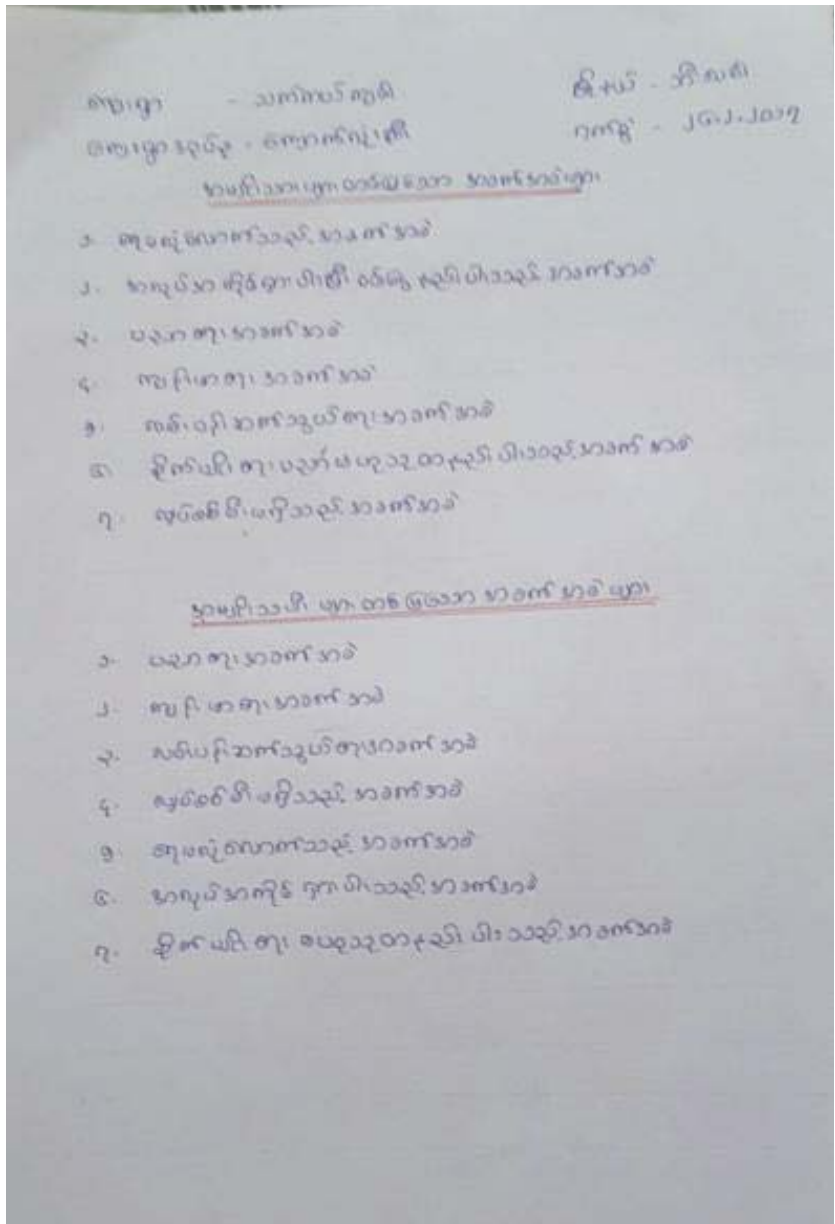 ကျေးရွာ -
ကျေးရွာအုပ်စု - ကျောက်လုံးကြီး
ရက်စွဲ - ၂၆.၂.၂၀၁၇
အမျိုးသားများ တင်ပြသော အခက်အခဲများ
၁. ရေမလုံလောက်သည့် အခက်အခဲ
၂. အလုပ်အကိုင်ရှားပါးပြီး ဝင်ငွေနည်းပါးသည့် အခက်အခဲ
၃. ပညာရေးအခက်အခဲ
၄. ကျန်းမာရေးအခက်အခဲ
၅. လမ်းပန်းဆက်သွယ်ရေးအခက်အခဲ
၆. စိုက်ပျိုးရေးပညာ နည်းပါးသည့်အခက်အခဲ
၇. လျှပ်စစ်မီးမရှိသည့် အခက်အခဲ
အမျိုးသမီးများ တင်ပြသော အခက်အခဲများ
၁. ပညာရေးအခက်အခဲ
၂. ကျန်းမာရေးအခက်အခဲ
၃. လမ်းပန်းဆက်သွယ်ရေးအခက်အခဲ
၄. လျှပ်စစ်မီးမရှိသည့် အခက်အခဲ
၅. ရေမလုံလောက်သည့် အခက်အခဲ
၆. အလုပ်အကိုင်ရှားပါးသည့် အခက်အခဲ
၇. စိုက်ပျိုးရေး ဗဟုသုတနည်းပါးသည့် အခက်အခဲ